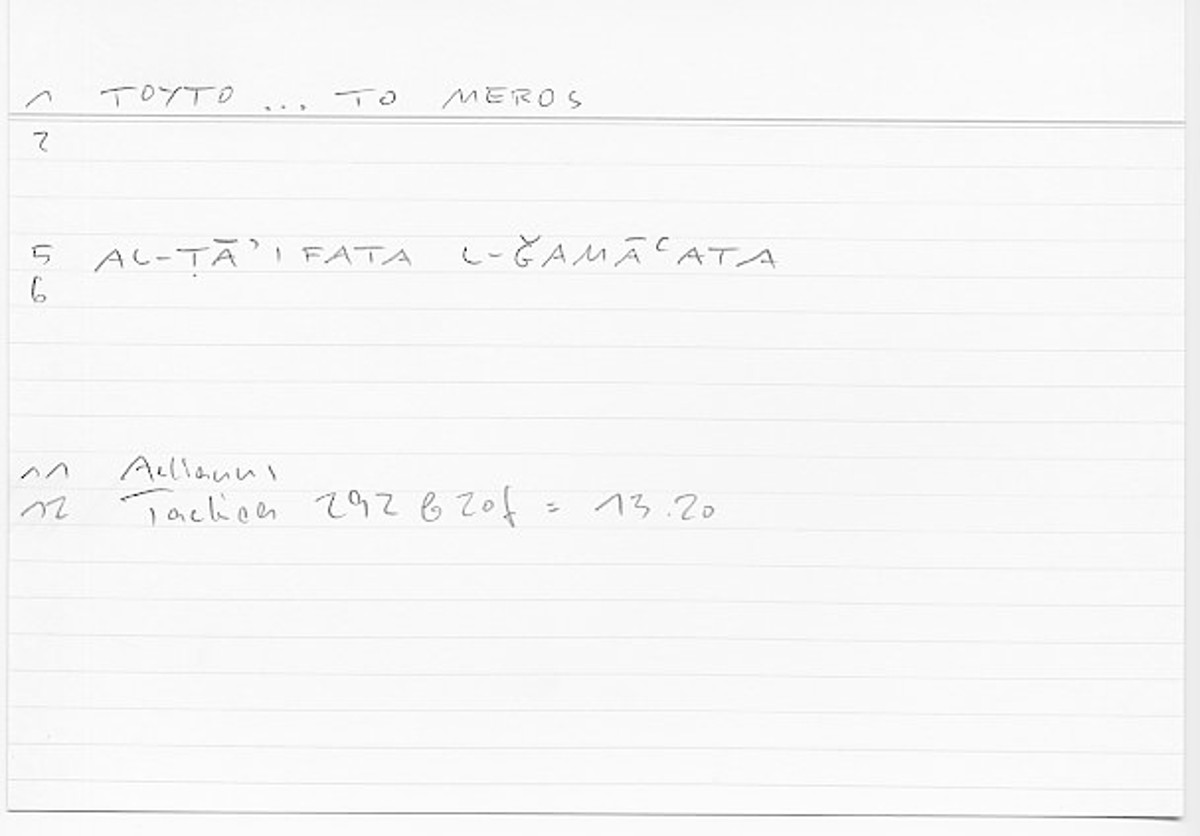 1 TOYTO ... TO MEROS
2
5 AL-ṬĀʾIFATA L-ǦAMĀʿATA
6
11 Aelianus
12 Tactica 292 B 20f = 13.20